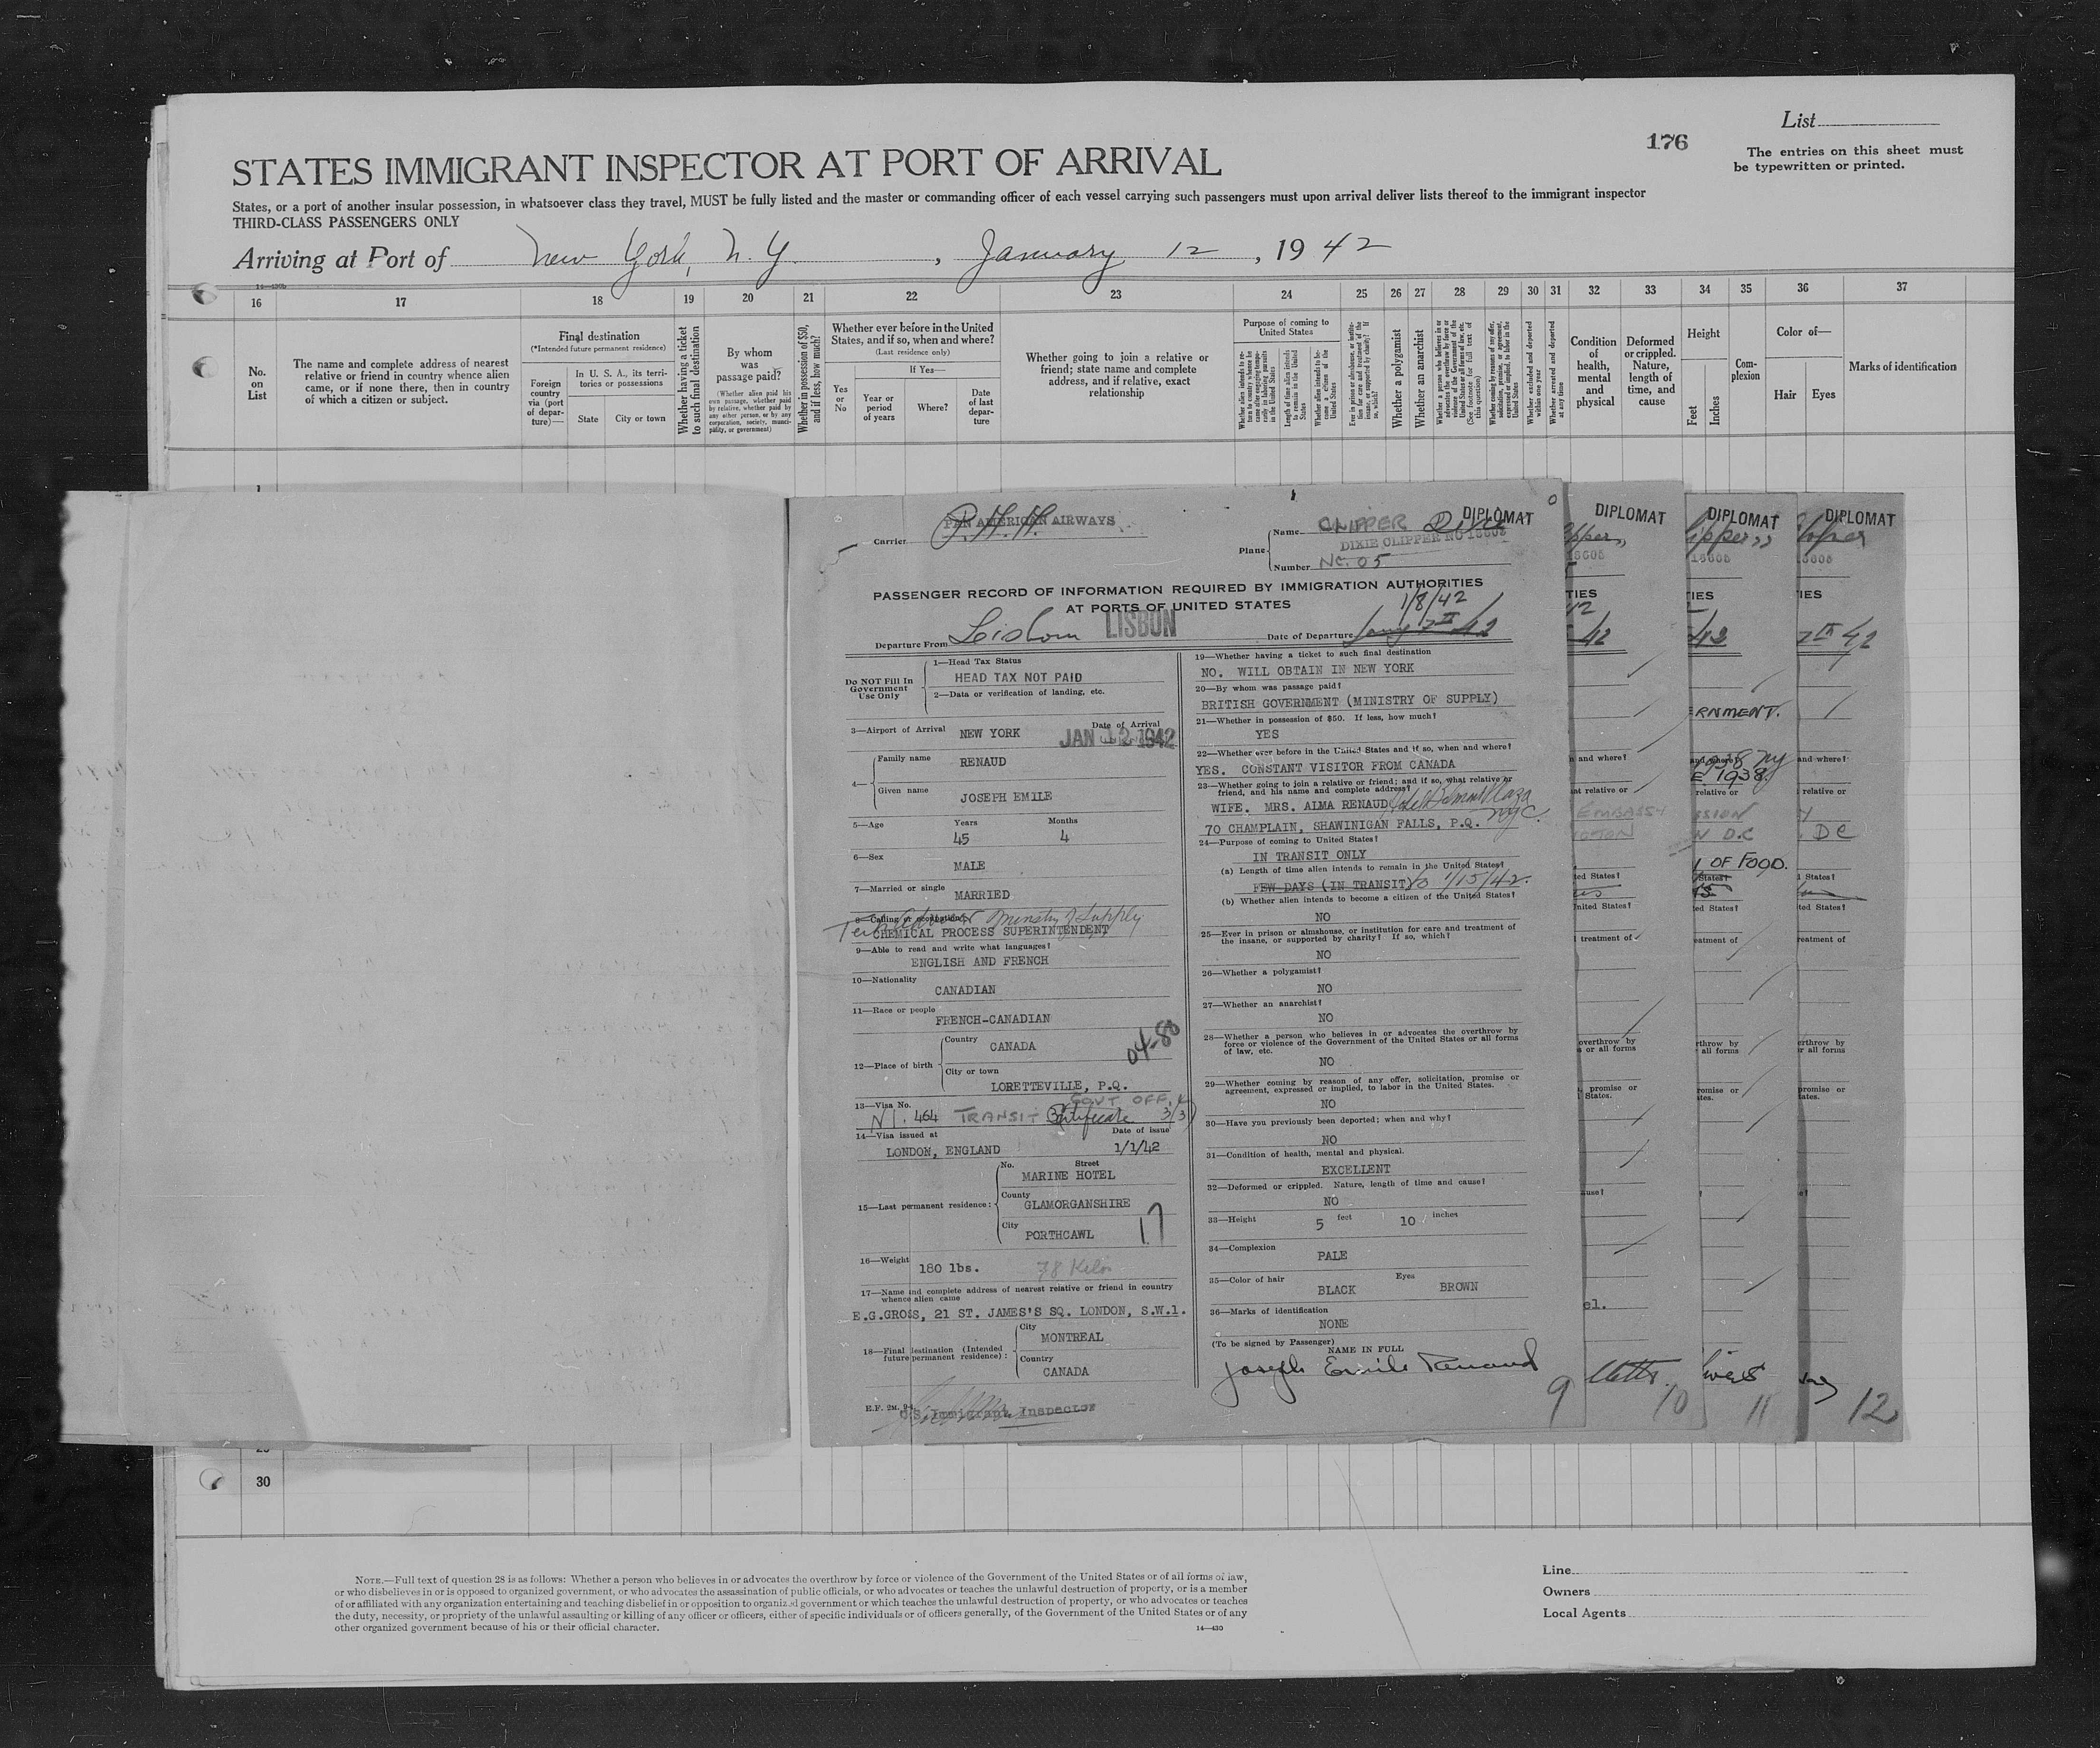 List
176
The entries on this sheet must
be typewritten or printed.
STATES IMMIGRANT INSPECTOR AT PORT OF ARRIVAL
States, or a port of another insular possession, in whatsoever class they travel, MUST be fully listed and the master or commanding officer of each vessel carrying such passengers must upon arrival deliver lists thereof to the immigrant inspector
THIRD-CLASS PASSENGERS ONLY
Arriving at Port of New York, N.Y., January 12, 1942
16 17 18 19 20 21 22 23 24 25 26 27 28 29 30 31 32 33 34 35 36 37
No. on List
The name and complete address of nearest relative or friend in country whence alien came, or if none there, then in country of which a citizen or subject.
Final destination
(*Intended future permanent residence)
Foreign country via (port of departure)—
In U. S. A., its territories or possessions
State
City or town
Whether having a ticket to such final destination
By whom was passage paid?
(Whether alien paid his own passage, whether paid by relative, whether paid by any other person, or by any corporation, society, municipality, or government)
Whether in possession of $50, and if less, how much?
Whether ever before in the United States, and if so, when and where?
(Last residence only)
Yes or No
If Yes—
Year or period of years
Where?
Date of last departure
Whether going to join a relative or friend; state name and complete address, and if relative, exact relationship
Purpose of coming to United States
Length of time alien intends to remain in the United States
Whether alien intends to become a citizen of the United States
Whether a polygamist
Whether an anarchist
Whether excluded and deported within one year
Whether arrested and deported at any time
Condition of health, mental and physical
Deformed or crippled. Nature, length of time, and cause
Height
Feet
Inches
Complexion
Color of—
Hair
Eyes
Marks of identification
Carrier PAN AMERICAN AIRWAYS
Plane
Name CLIPPER
DIPLOMAT
DIXIE CLIPPER NO 18605
Number NC. 05
PASSENGER RECORD OF INFORMATION REQUIRED BY IMMIGRATION AUTHORITIES
AT PORTS OF UNITED STATES
1/8/42
Departure From Lisbon LISBON
Date of Departure
Do NOT Fill In
Government
Use Only
1—Head Tax Status
HEAD TAX NOT PAID
2—Data or verification of landing, etc.
3—Airport of Arrival NEW YORK
Date of Arrival
JAN 12 1942
4—
Family name RENAUD
Given name JOSEPH EMILE
5—Age
Years 45
Months 4
6—Sex
MALE
7—Married or single
MARRIED
8—Calling or occupation
Ministry of Supply
CHEMICAL PROCESS SUPERINTENDENT
9—Able to read and write what languages?
ENGLISH AND FRENCH
10—Nationality
CANADIAN
11—Race or people
FRENCH-CANADIAN
12—Place of birth
Country
CANADA
04-80
City or town
LORETTEVILLE, P.Q.
13—Visa No.
GOVT OFF.
464 TRANSIT Certificate 3(3)
14—Visa issued at
LONDON, ENGLAND
Date of issue
1/1/42
15—Last permanent residence:
No. Street
MARINE HOTEL
County
GLAMORGANSHIRE
City
PORTHCAWL
17
16—Weight 180 lbs. 78 Kilos
17—Name and complete address of nearest relative or friend in country
whence alien came
E.G.GROSS, 21 ST. JAMES'S SQ. LONDON, S.W.1.
18—Final destination (Intended
future permanent residence):
City
MONTREAL
Country
CANADA
E.F. 2M. 9-4
U.S. Immigrant Inspector
19—Whether having a ticket to such final destination
NO. WILL OBTAIN IN NEW YORK
20—By whom was passage paid?
BRITISH GOVERNMENT (MINISTRY OF SUPPLY)
21—Whether in possession of $50. If less, how much?
YES
22—Whether ever before in the United States and if so, when and where?
YES. CONSTANT VISITOR FROM CANADA
23—Whether going to join a relative or friend; and if so, what relative or
friend, and his name and complete address?
WIFE. MRS. ALMA RENAUD Plaza
70 CHAMPLAIN, SHAWINIGAN FALLS, P.Q. NYC.
24—Purpose of coming to United States?
IN TRANSIT ONLY
(a) Length of time alien intends to remain in the United States?
FEW DAYS (IN TRANSIT) to 1/15/42.
(b) Whether alien intends to become a citizen of the United States?
NO
25—Ever in prison or almshouse, or institution for care and treatment of
the insane, or supported by charity? If so, which?
NO
26—Whether a polygamist?
NO
27—Whether an anarchist?
NO
28—Whether a person who believes in or advocates the overthrow by
force or violence of the Government of the United States or all forms
of law, etc.
NO
29—Whether coming by reason of any offer, solicitation, promise or
agreement, expressed or implied, to labor in the United States.
NO
30—Have you previously been deported; when and why?
NO
31—Condition of health, mental and physical.
EXCELLENT
32—Deformed or crippled. Nature, length of time and cause?
NO
33—Height 5 feet 10 inches
34—Complexion
PALE
35—Color of hair BLACK Eyes BROWN
36—Marks of identification
NONE
(To be signed by Passenger)
NAME IN FULL
Joseph Emile Renaud
9
DIPLOMAT
10
DIPLOMAT
ERNMENT.
1938 NY
E 1938.
N D.C
OF FOOD.
11
DIPLOMAT
DC
12
30
NOTE.—Full text of question 28 is as follows: Whether a person who believes in or advocates the overthrow by force or violence of the Government of the United States or of all forms of law,
or who disbelieves in or is opposed to organized government, or who advocates the assassination of public officials, or who advocates or teaches the unlawful destruction of property, or is a member
of or affiliated with any organization entertaining and teaching disbelief in or opposition to organized government or which teaches the unlawful destruction of property, or who advocates or teaches
the duty, necessity, or propriety of the unlawful assaulting or killing of any officer or officers, either of specific individuals or of officers generally, of the Government of the United States or of any
other organized government because of his or their official character.
14—430
Line
Owners
Local Agents